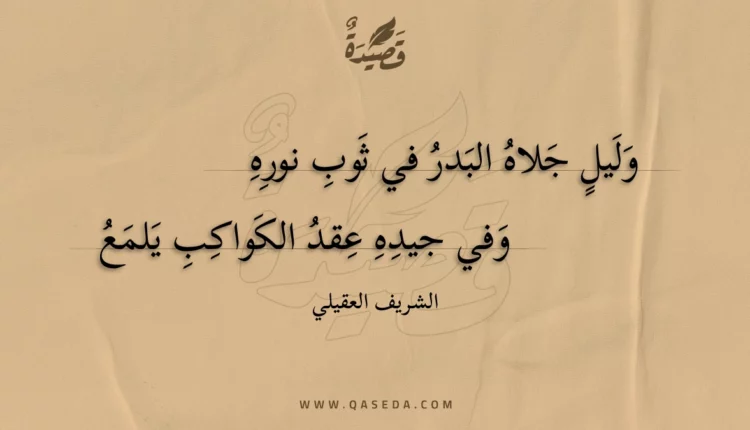 قَصِيدَةٌ
وَلَيلٍ جَلاهُ البَدرُ في ثَوبِ نورِهِ
وَفي جيدِهِ عِقدُ الكَواكِبِ يَلمَعُ
الشريف العقيلي
WWW.QASEDA.COM